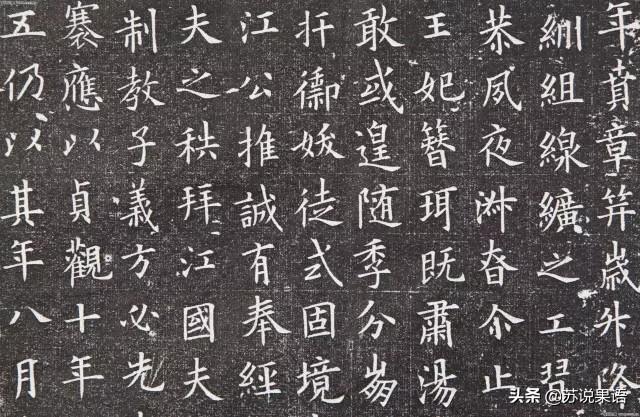 年賁章笄歲外降
組線纊之工習
恭夙夜淑昚尒止
王妃簪珥既肅湯
敢或遑随季分
扞徒式固境
江公推誠有奉經
夫之秩拜江國夫
制教子義方必先
褰應以貞觀十年
五仍以其年八月
头条 @苏说果语